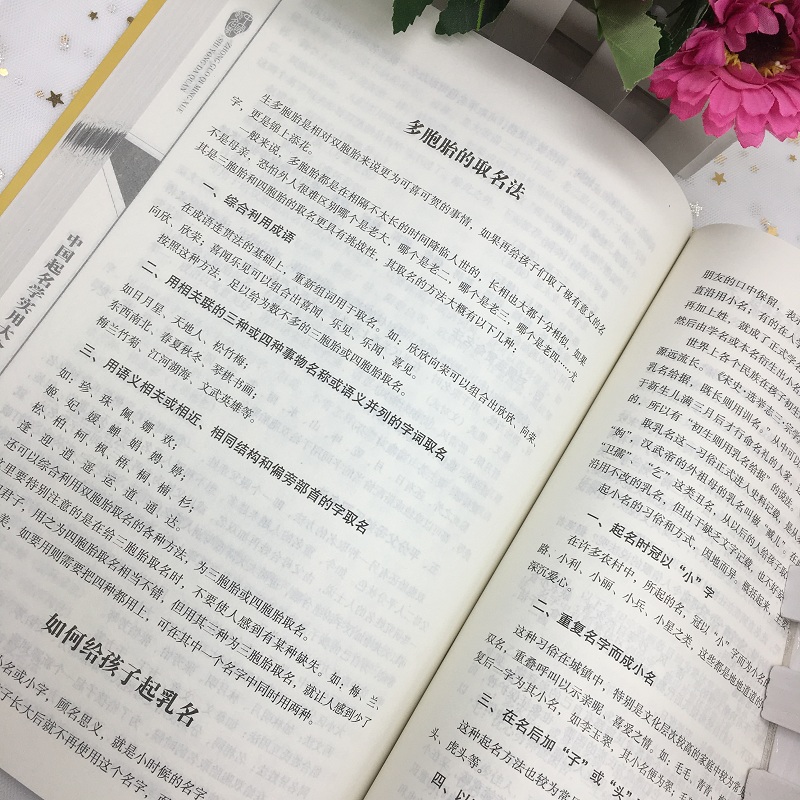 ZHONG GUO QI MING XUE
SHI YONG DA QUAN
中国起名学实用大全
多胞胎的取名法
生多胞胎是相对双胞胎来说更为可喜可贺的事情,如果再给孩子们取了极有意义的名
字,更是锦上添花。
一般来说,多胞胎都是在相隔不太长的时间降临人世的,长相也大都十分相似,如果
不是母亲,恐怕外人很难区别哪个是老大,哪个是老二,哪个是老三,哪个是老四……尤
其是三胞胎和四胞胎的取名更具有挑战性,其取名的方法大概有以下几种:
一、综合利用成语
在成语连贯法的基础上,重新组词用于取名。如:欣欣向荣可以组合出欣欣、向荣、
向欣、欣荣;喜闻乐见可以组合出喜闻、乐见、乐闻、喜见。
按照这种方法,足以给为数不多的三胞胎或四胞胎取名。
二、用相关联的三种或四种事物名称或语义并列的字词取名
如日月星、天地人、松竹梅;
东西南北、春夏秋冬、琴棋书画;
梅兰竹菊、江河湖海、文武英雄等。
三、用语义相关或相近、相同结构和偏旁部首的字取名
如:珍、珠、佩、娜、欢;
姬、妃、媛、婵、娟、娉、婷;
松、柏、柯、枫、梧、桐、楠、杉;
逢、迎、逍、遥、运、道、通、达。
还可以综合利用双胞胎取名的各种方法,为三胞胎或四胞胎取名。
里要特别注意的是在给三胞胎取名时,不要使人感到有某种缺失。如:梅、兰、
君子,用之为四胞胎取名相当不错,但用其三种为三胞胎取名,就让人感到少了
差。如要用则需要把四种都用上,可在其中一个名字中同时用两种。
如何给孩子起乳名
小名或小字,顾名思义,就是小时候的名字。
孩子长大后就不再使用这个名字,而
朋友的口中保留,表
直沿用小名;有的在人
再加上姓,就成了正式学
然后由学名或本名衍生出小名
世界上各个民族在孩子初生
源远流长。《宋史·选举志三·宗学
乳名给据,既长则用训名。”从中可以
于新生儿满三月后才行命名礼的人家,
的,所以有“初生则用乳名给据”的说法
取乳名这一习俗正式进入史料记载,是从
“蚡”,汉武帝的外祖母的乳名叫做“臧儿”,在
“卫孺”、“仝”这类丑名,从以后的人给孩子
沿用不改的乳名,但由于缺乏文字记载,也不好妄
起小名的习俗和方式,因地而异,概括起来,主
一、起名时冠以“小”字
在许多农村中,所起的名,冠以“小”字而为小名的
路、小利、小丽、小兵、小星之类,这些都是地地道道的
深沉爱心。
二、重复名字而成小名
这种习俗在城镇中,特别是文化层次较高的家庭中较为常
双名,重叠呼叫以示亲昵、喜爱之情。如:毛毛、青青
复后一字为其小名,如李玉翠,其小名便为翠
三、在名后加“子”或“头”
这种起名方法也较为常
头、虎头等。
四、以